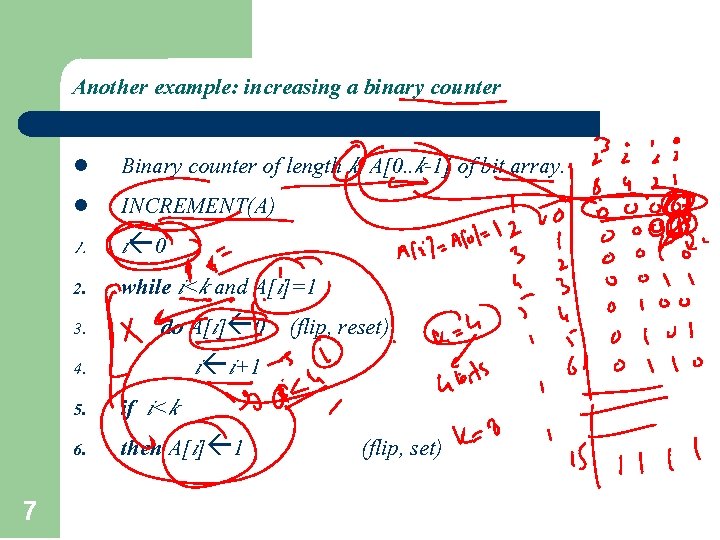 Another example: increasing a binary counter
● Binary counter of length k, A[0..k-1] of bit array.
● INCREMENT(A)
1. i←0
2. while i<k and A[i]=1
3. do A[i]←0 (flip, reset)
4. i←i+1
5. if i<k
6. then A[i]←1 (flip, set)
7
A[i]=A[0]=1
k=4
4 bits
K=3
8 4 2 1
0 0 0 0 0
1 0 0 0
2 0 0 0
3 0 0 1 1
4 0 1 0 0
5 0 1 0 1
6 0 1 1 0
15 1 1 1 1